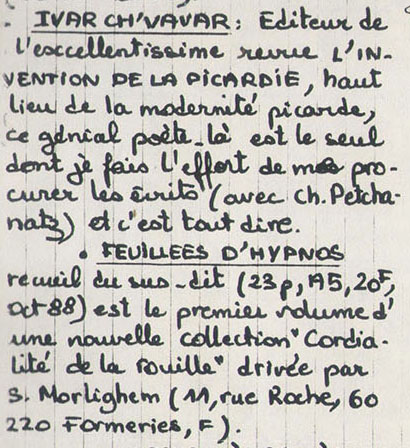 . IVAR CH'VAVAR : Editeur de
l'excellentissime revue L'IN-
VENTION DE LA PICARDIE, haut
lieu de la modernité picarde,
ce génial poète-là est le seul
dont je fais l'effort de me pro-
curer les écrits (avec Ch. Petcha-
natz) et c'est tout dire.
. FEUILLEES D'HYPNOS
recueil du sus-dit (23p, A5, 20F,
Oct 88) est le premier volume d'
une nouvelle collection "Cordia-
lité de la rouille" drivée par
S. Morlighem (11, rue Roche, 60
220 Formeries, F).